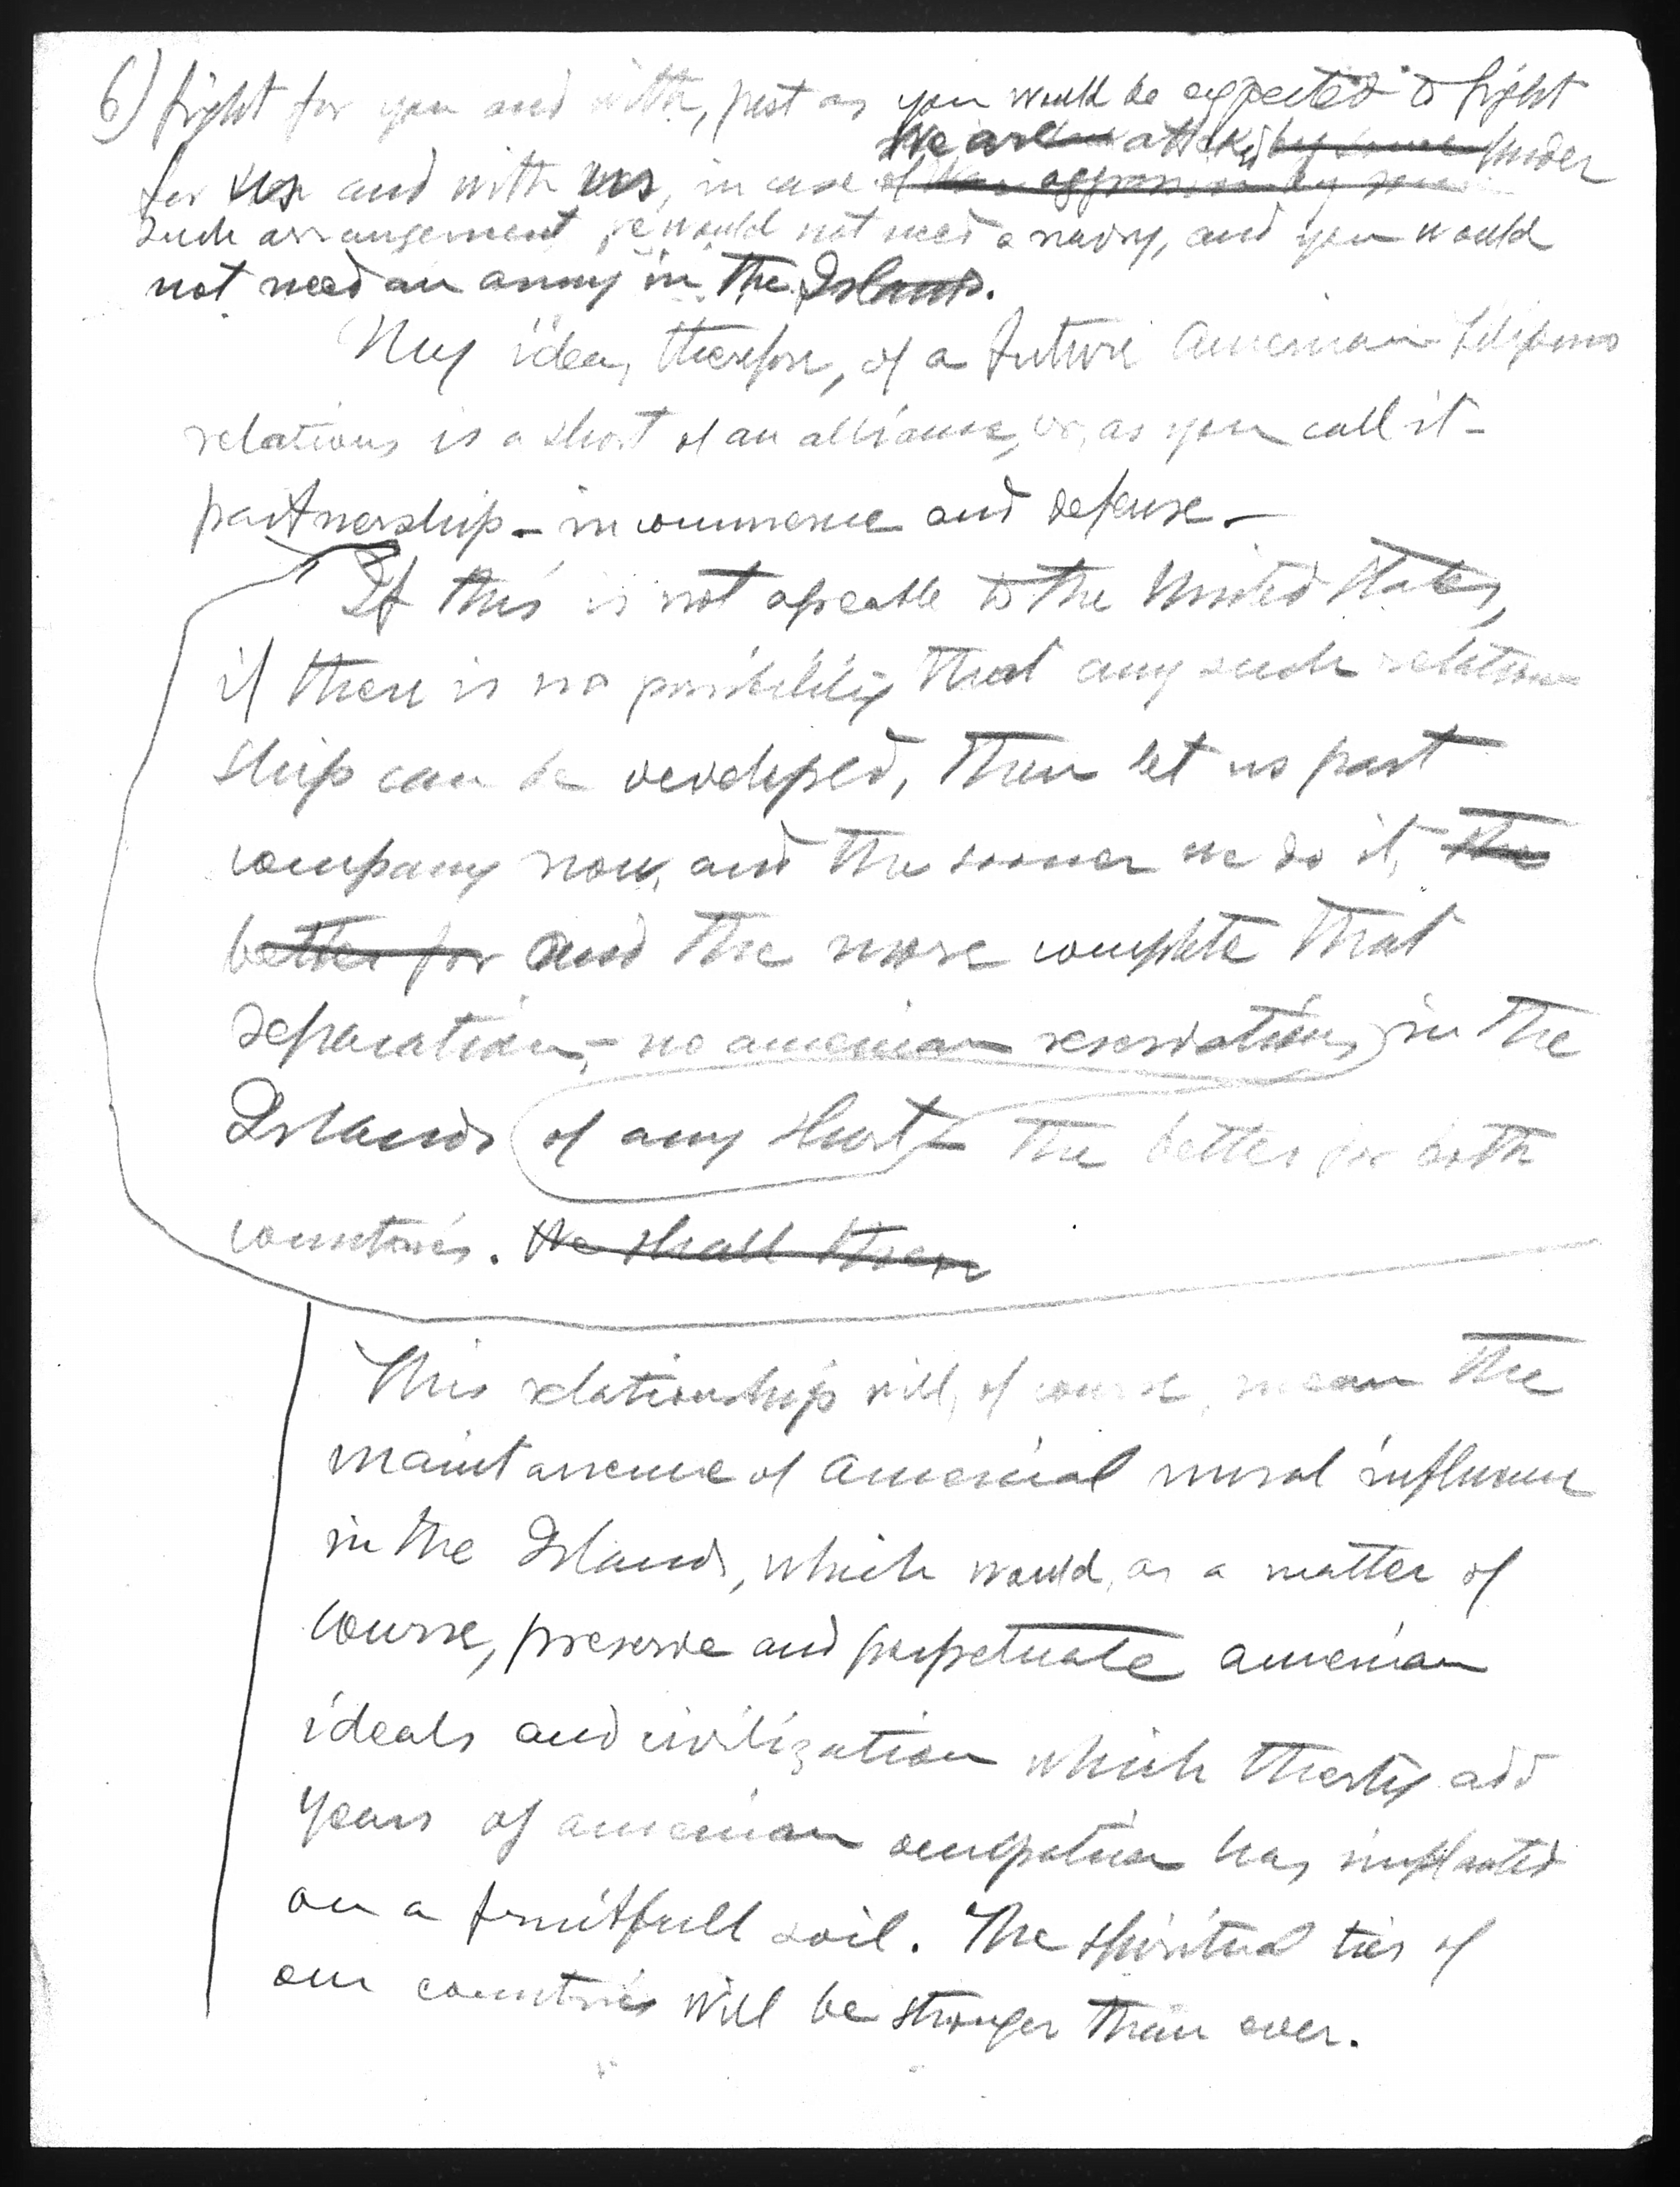 6) fight for you and with, just as you would be expected to fight
we are attacked by some Under
for us and with us, in case of aggression by some
such arrangement, we would not need a navy, and you would
not need an army in the Islands.
My idea, therefore, of a future American Filipino
relations is a short of an alliance, or, as you call it -
partnership - in commerce and defense. -
If this is not agreable to the United States,
if there is no posibility that any such relation
ship can be developed, then let us part
company now, and the sooner we do it, the
better for and the more complete that
separation, - no american reservations in the
Islands of any short - the better for both
countries. We shall then
This relationship will, of course, mean the
maintanence of American moral influence
in the Islands, which would, as a matter of
course, preserve and perpetuate american
ideals and civilization which thirty odd
years of american occupation has implanted
on a fruitfull soil. The spiritual ties of
our countries will be stronger than ever.